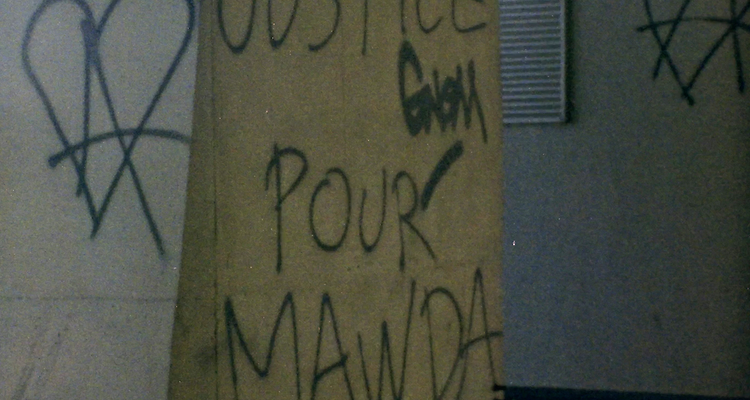 JUSTICE
GNOM
POUR
MAWDA